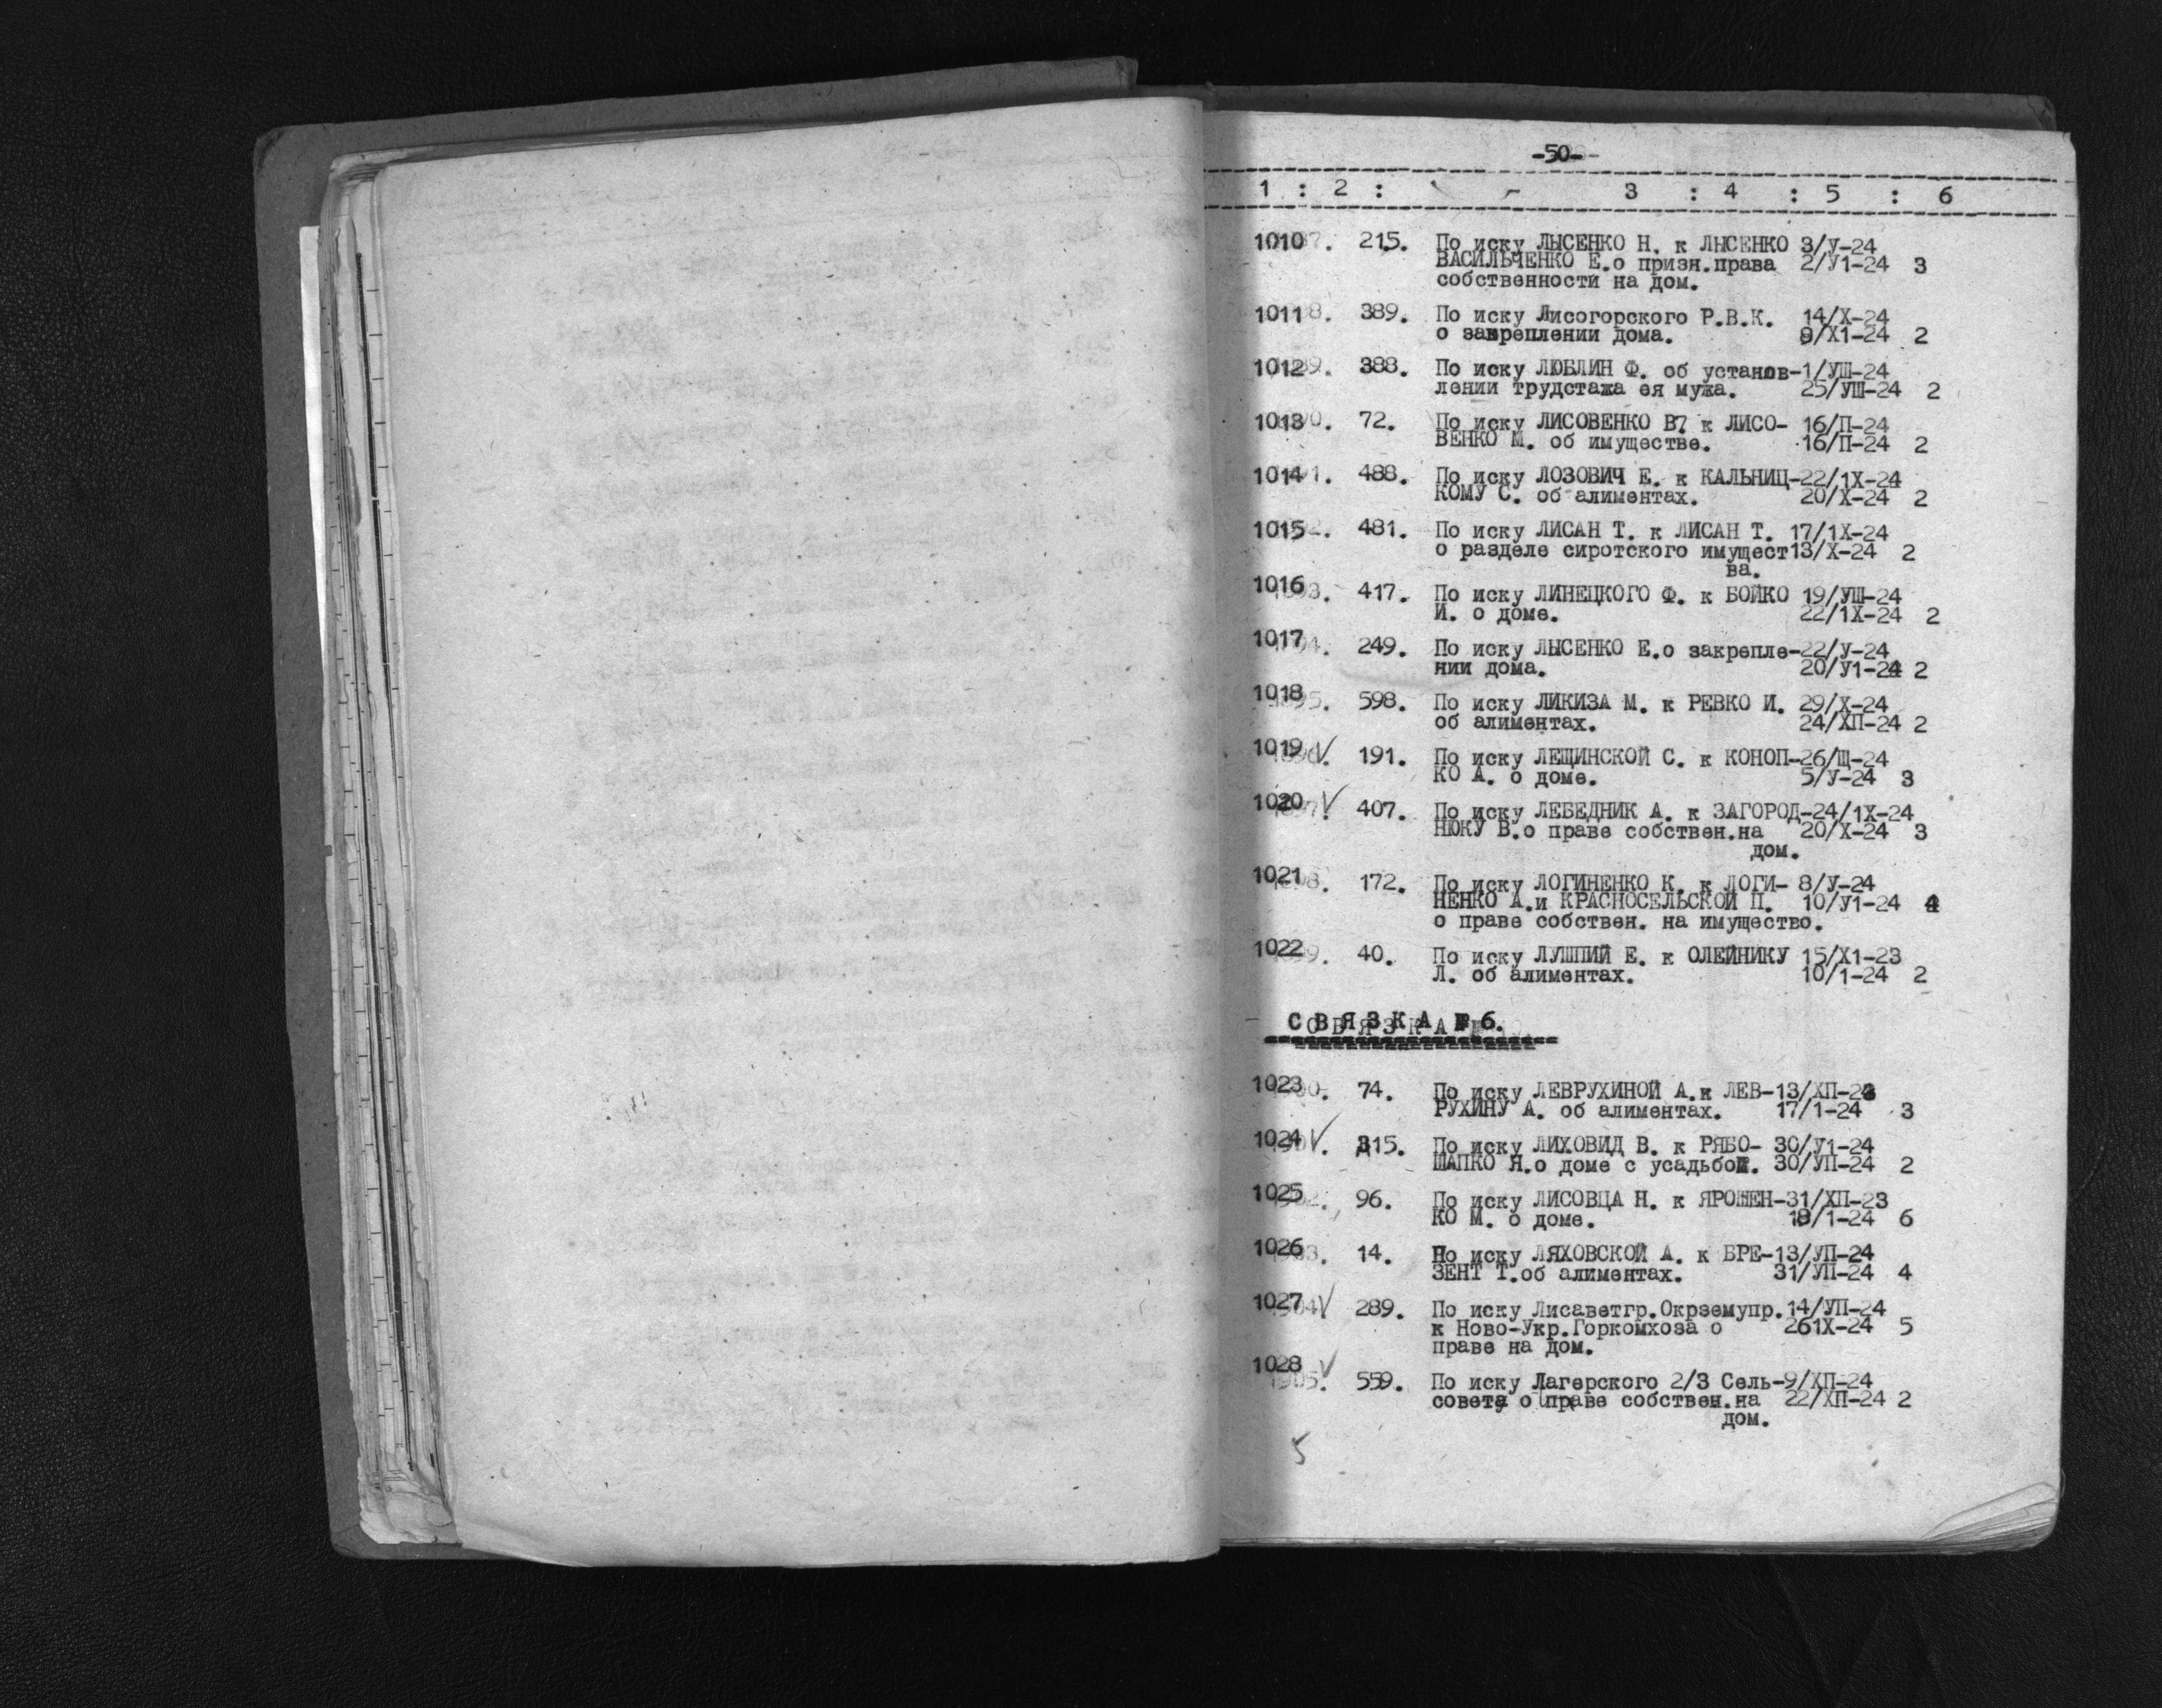 -50-
1 : 2 : 3 : 4 : 5 : 6
1010. 215. По иску ЛЫСЕНКО Н. к ЛЫСЕНКО 3/У-24
ВАСИЛЬЧЕНКО Е.о призн.права 2/У1-24 3
собственности на дом.
1011. 389. По иску Лисогорского Р.В.К. 14/Х-24
о закреплении дома. 8/Х1-24 2
1012. 388. По иску ЛЮБЛИН Ф. об установ-1/УШ-24
лении трудстажа ея мужа. 25/УШ-24 2
1013. 72. По иску ЛИСОВЕНКО В7 к ЛИСО- 16/П-24
ВЕНКО М. об имуществе. 16/П-24 2
1014. 488. По иску ЛОЗОВИЧ Е. к КАЛЬНИЦ-22/1Х-24
КОМУ С. об алиментах. 20/Х-24 2
1015. 481. По иску ЛИСАН Т. к ЛИСАН Т. 17/1Х-24
о разделе сиротского имущест13/Х-24 2
ва.
1016. 417. По иску ЛИНЕЦКОГО Ф. к БОЙКО 19/УШ-24
И. о доме. 22/1Х-24 2
1017. 249. По иску ЛЫСЕНКО Е.о закрепле-22/У-24
нии дома. 20/У1-24 2
1018. 598. По иску ЛИКИЗА М. к РЕВКО И. 29/Х-24
об алиментах. 24/ХП-24 2
1019. 191. По иску ЛЕЩИНСКОЙ С. к КОНОП-26/Щ-24
КО А. о доме. 5/У-24 3
1020. 407. По иску ЛЕБЕДНИК А. к ЗАГОРОД-24/1Х-24
НЮКУ В.о праве собствен.на 20/Х-24 3
дом.
1021. 172. По иску ЛОГИНЕНКО К. к ЛОГИ- 8/У-24
НЕНКО А.и КРАСНОСЕЛЬСКОЙ П. 10/У1-24 4
о праве собствен. на имущество.
1022. 40. По иску ЛУШПИЙ Е. к ОЛЕЙНИКУ 15/Х1-23
Л. об алиментах. 10/1-24 2
С В Я З К А № 6.
1023. 74. По иску ЛЕВРУХИНОЙ А.к ЛЕВ-13/ХП-23
РУХИНУ А. об алиментах. 17/1-24 3
1024. 315. По иску ЛИХОВИД В. к РЯБО- 30/У1-24
ШАПКО Я.о доме с усадьбой. 30/УП-24 2
1025. 96. По иску ЛИСОВЦА Н. к ЯРОШЕН-31/ХП-23
КО М. о доме. 18/1-24 6
1026. 14. По иску ЛЯХОВСКОЙ А. к БРЕ-13/УП-24
ЗЕНТ Т.об алиментах. 31/УП-24 4
1027. 289. По иску Лисаветгр.Окрземупр.14/УП-24
к Ново-Укр.Горкомхоза о 261Х-24 5
праве на дом.
1028. 559. По иску Лагерского 2/3 Сель-9/ХП-24
совета о праве собствен.на 22/ХП-24 2
дом.
5